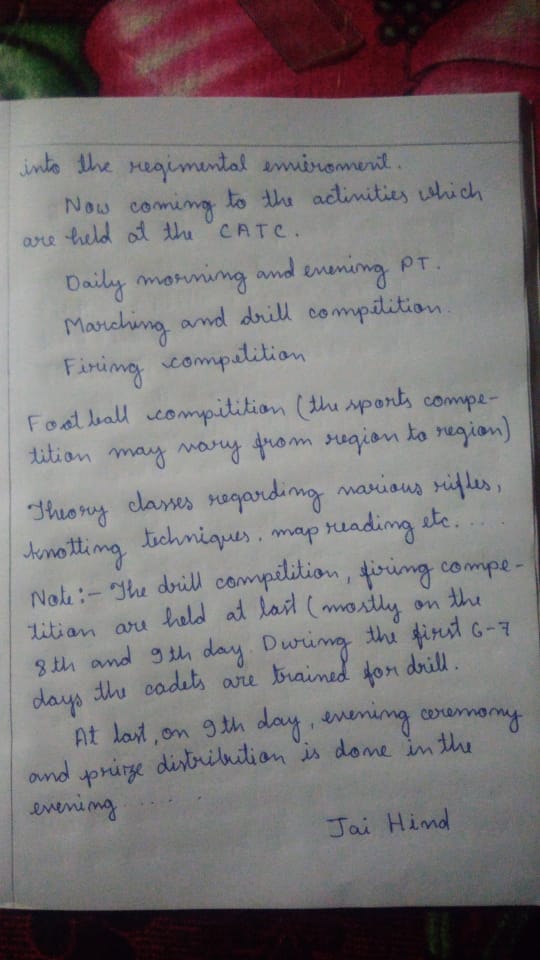 into the regimental enviroment.
Now coming to the activities which
are held at the CATC.
Daily morning and evening PT.
Marching and drill competition.
Firing competition
Football compitition (the sports compe-
tition may vary from region to region)
Theory classes regarding various rifles,
knotting techniques, map reading etc.....
Note:- The drill competition, firing compe-
tition are held at last (mostly on the
8th and 9th day. During the first 6-7
days the cadets are trained for drill.
At last, on 9th day, evening ceremony
and prize distribution is done in the
evening......
Jai Hind